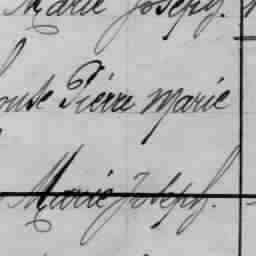 Marie Joseph.
Pierre Marie
Marie Joseph.